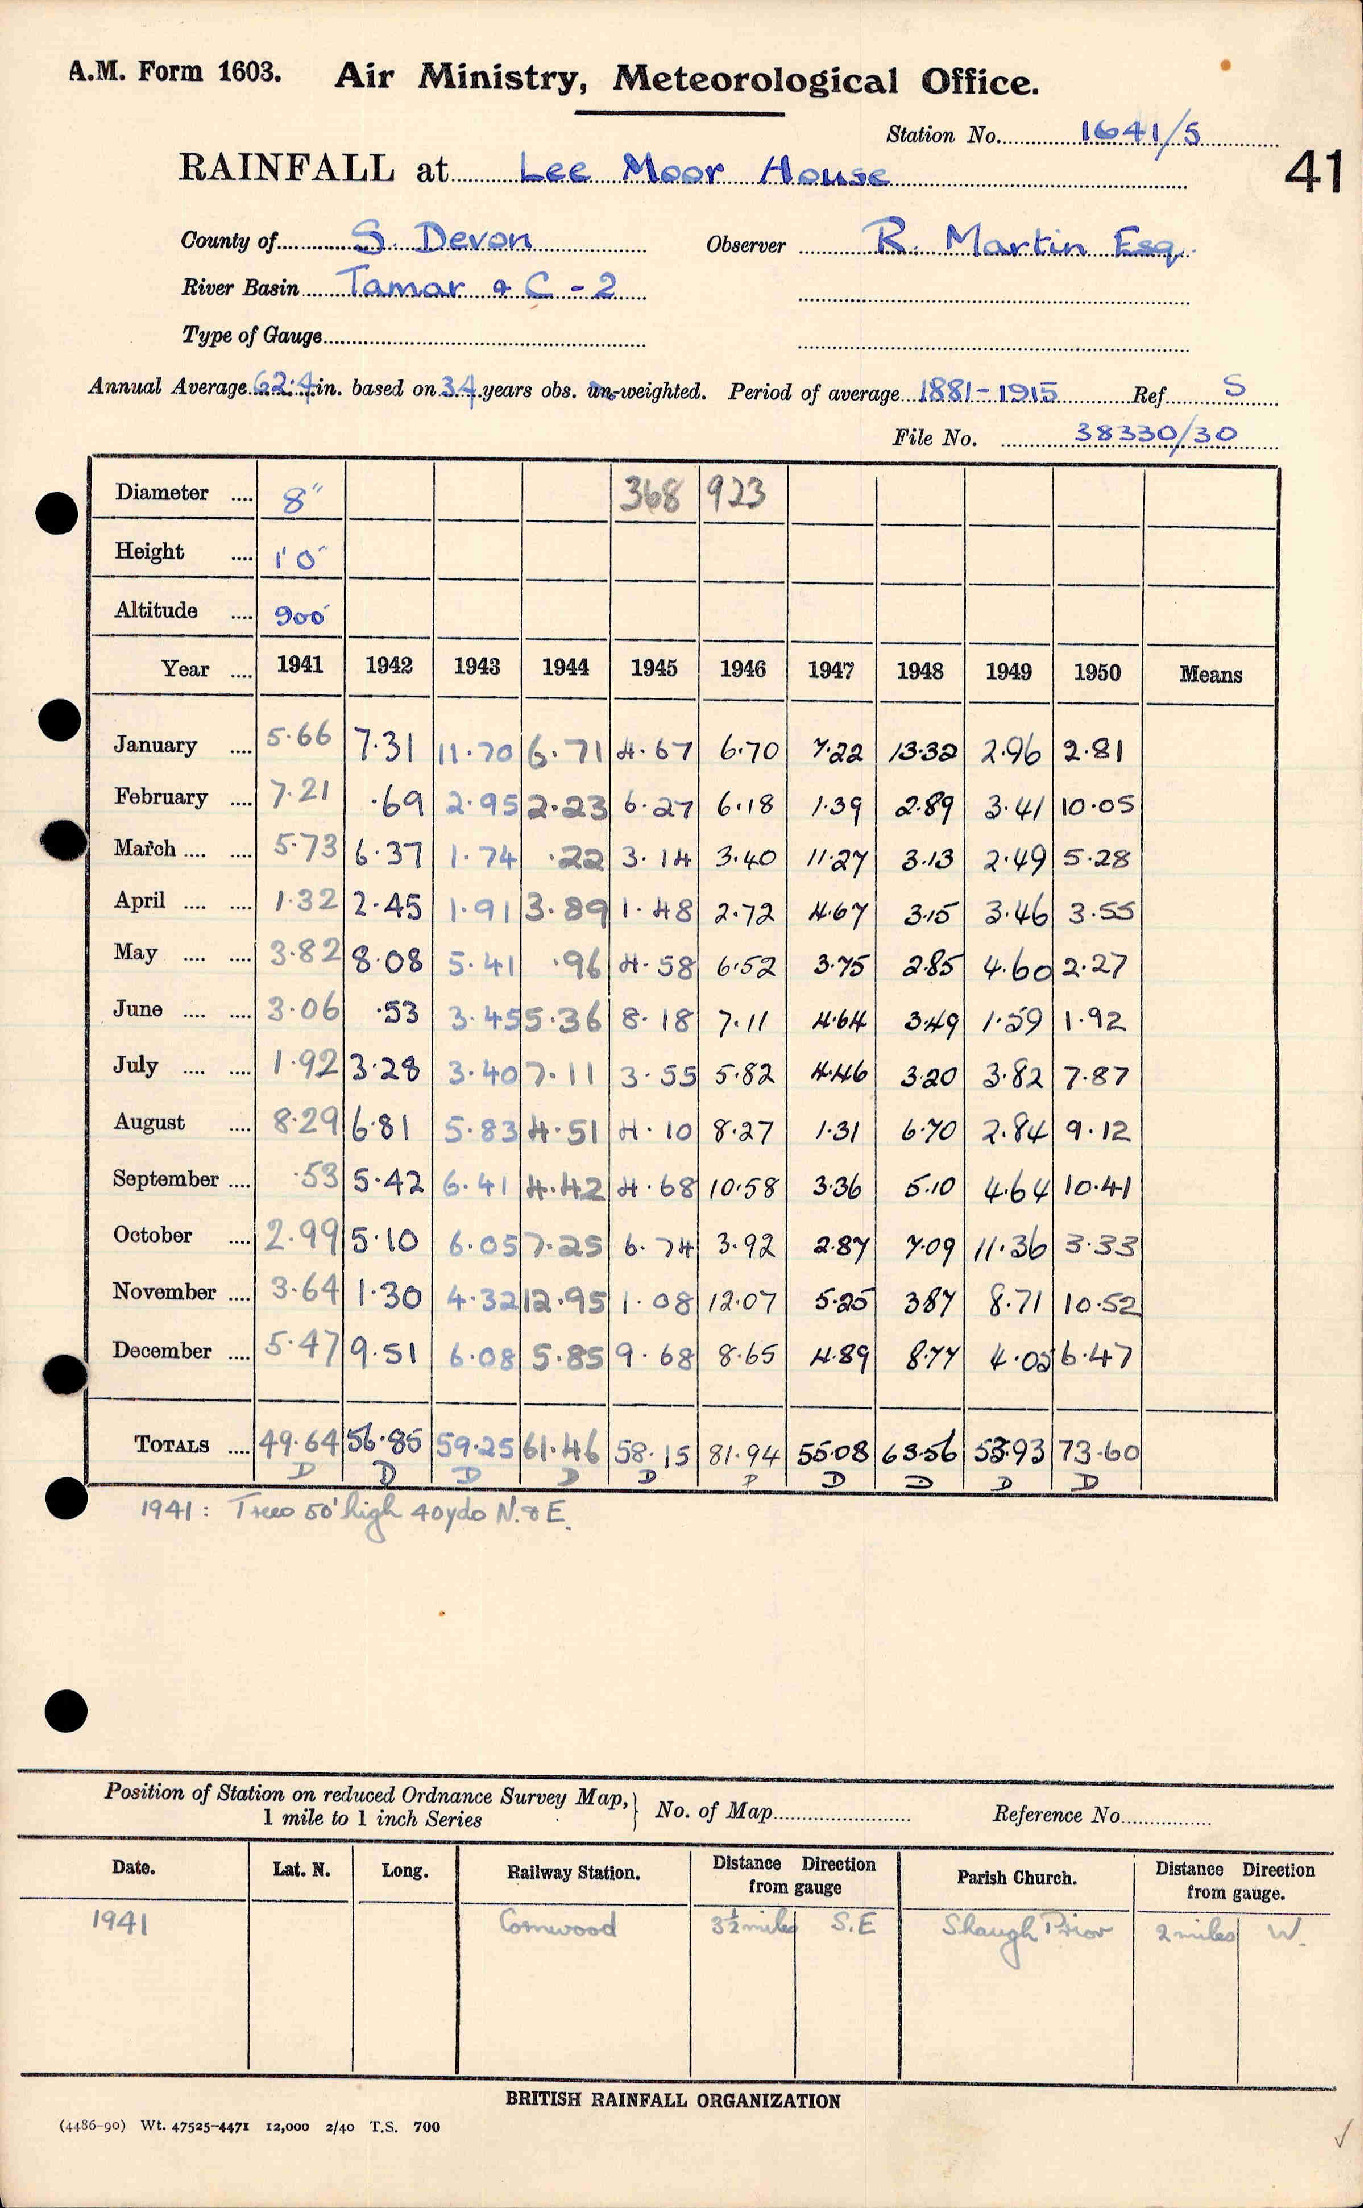 A.M. Form 1603. Air Ministry, Meteorological Office.
Station No. 1641/5
RAINFALL at Lee Moor House
41
County of S. Devon Observer R. Martin Esq.
River Basin Tamar & C - 2
Type of Gauge
Annual Average 62.4 in. based on 34 years obs. un-weighted. Period of average 1881-1915 Ref S
File No. 38330/30
Diameter .... 8" 368 923
Height .... 1'0"
Altitude .... 900'
Year .... 1941 1942 1943 1944 1945 1946 1947 1948 1949 1950 Means
January .... 5.66 7.31 11.70 6.71 4.67 6.70 7.22 13.32 2.96 2.81
February .... 7.21 .69 2.95 2.23 6.27 6.18 1.39 2.89 3.41 10.05
March .... .... 5.73 6.37 1.74 .22 3.14 3.40 11.27 3.13 2.49 5.28
April .... .... 1.32 2.45 1.91 3.89 1.48 2.72 4.67 3.15 3.46 3.55
May .... .... 3.82 8.08 5.41 .96 4.58 6.52 3.75 2.85 4.60 2.27
June .... .... 3.06 .53 3.45 5.36 8.18 7.11 4.64 3.49 1.59 1.92
July .... .... 1.92 3.28 3.40 7.11 3.55 5.82 4.46 3.20 3.82 7.87
August .... 8.29 6.81 5.83 4.51 4.10 8.27 1.31 6.70 2.84 9.12
September .... .53 5.42 6.41 4.42 4.68 10.58 3.36 5.10 4.64 10.41
October .... 2.99 5.10 6.05 7.25 6.74 3.92 2.87 7.09 11.36 3.33
November .... 3.64 1.30 4.32 12.95 1.08 12.07 5.25 3.87 8.71 10.52
December .... 5.47 9.51 6.08 5.85 9.68 8.65 4.89 8.77 4.05 6.47
TOTALS .... 49.64 56.85 59.25 61.46 58.15 81.94 55.08 63.56 53.93 73.60
D D D D D D D D D
1941: Trees 50' high 40yds N. & E.
Position of Station on reduced Ordnance Survey Map, 1 mile to 1 inch Series } No. of Map Reference No.
Date. Lat. N. Long. Railway Station. Distance Direction from gauge Parish Church. Distance Direction from gauge.
1941 Cornwood 3½ miles S.E Shaugh Prior 2 miles W.
BRITISH RAINFALL ORGANIZATION
(4486-90) Wt. 47525-4471 12,000 2/40 T.S. 700